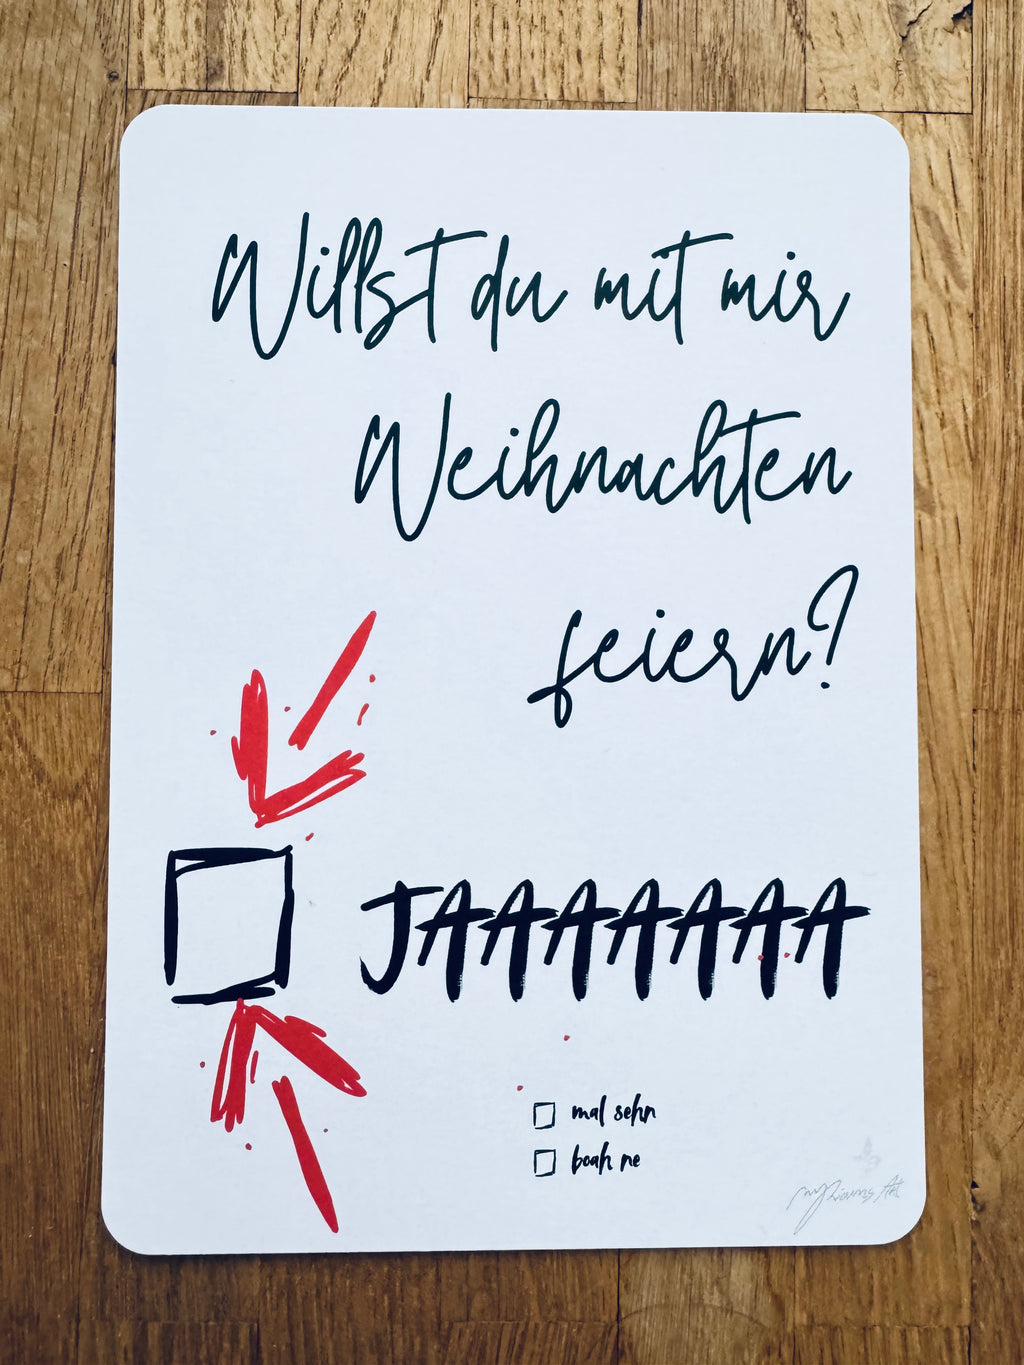 Willst du mit mir
Weihnachten
feiern?
JAAAAAAA
mal sehn
boah ne